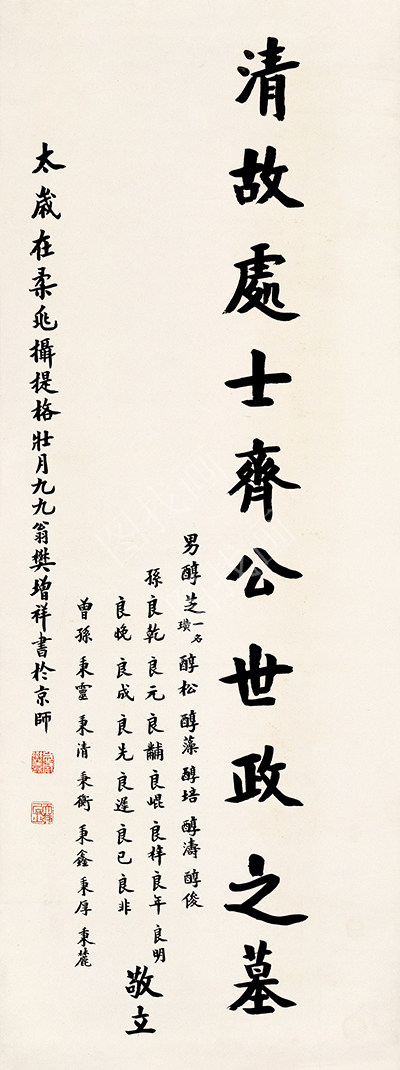 清故處士齊公世政之墓
男醇芝一名璜醇松醇藻醇培醇濤醇俊
孫良乾良元良黼良崐良梓良年良明
良晚良成良先良遲良已良非
曾孫秉靈秉清秉衡秉鑫秉厚秉麓
敬立
太歲在柔兆攝提格壯月九九翁樊增祥書於京師